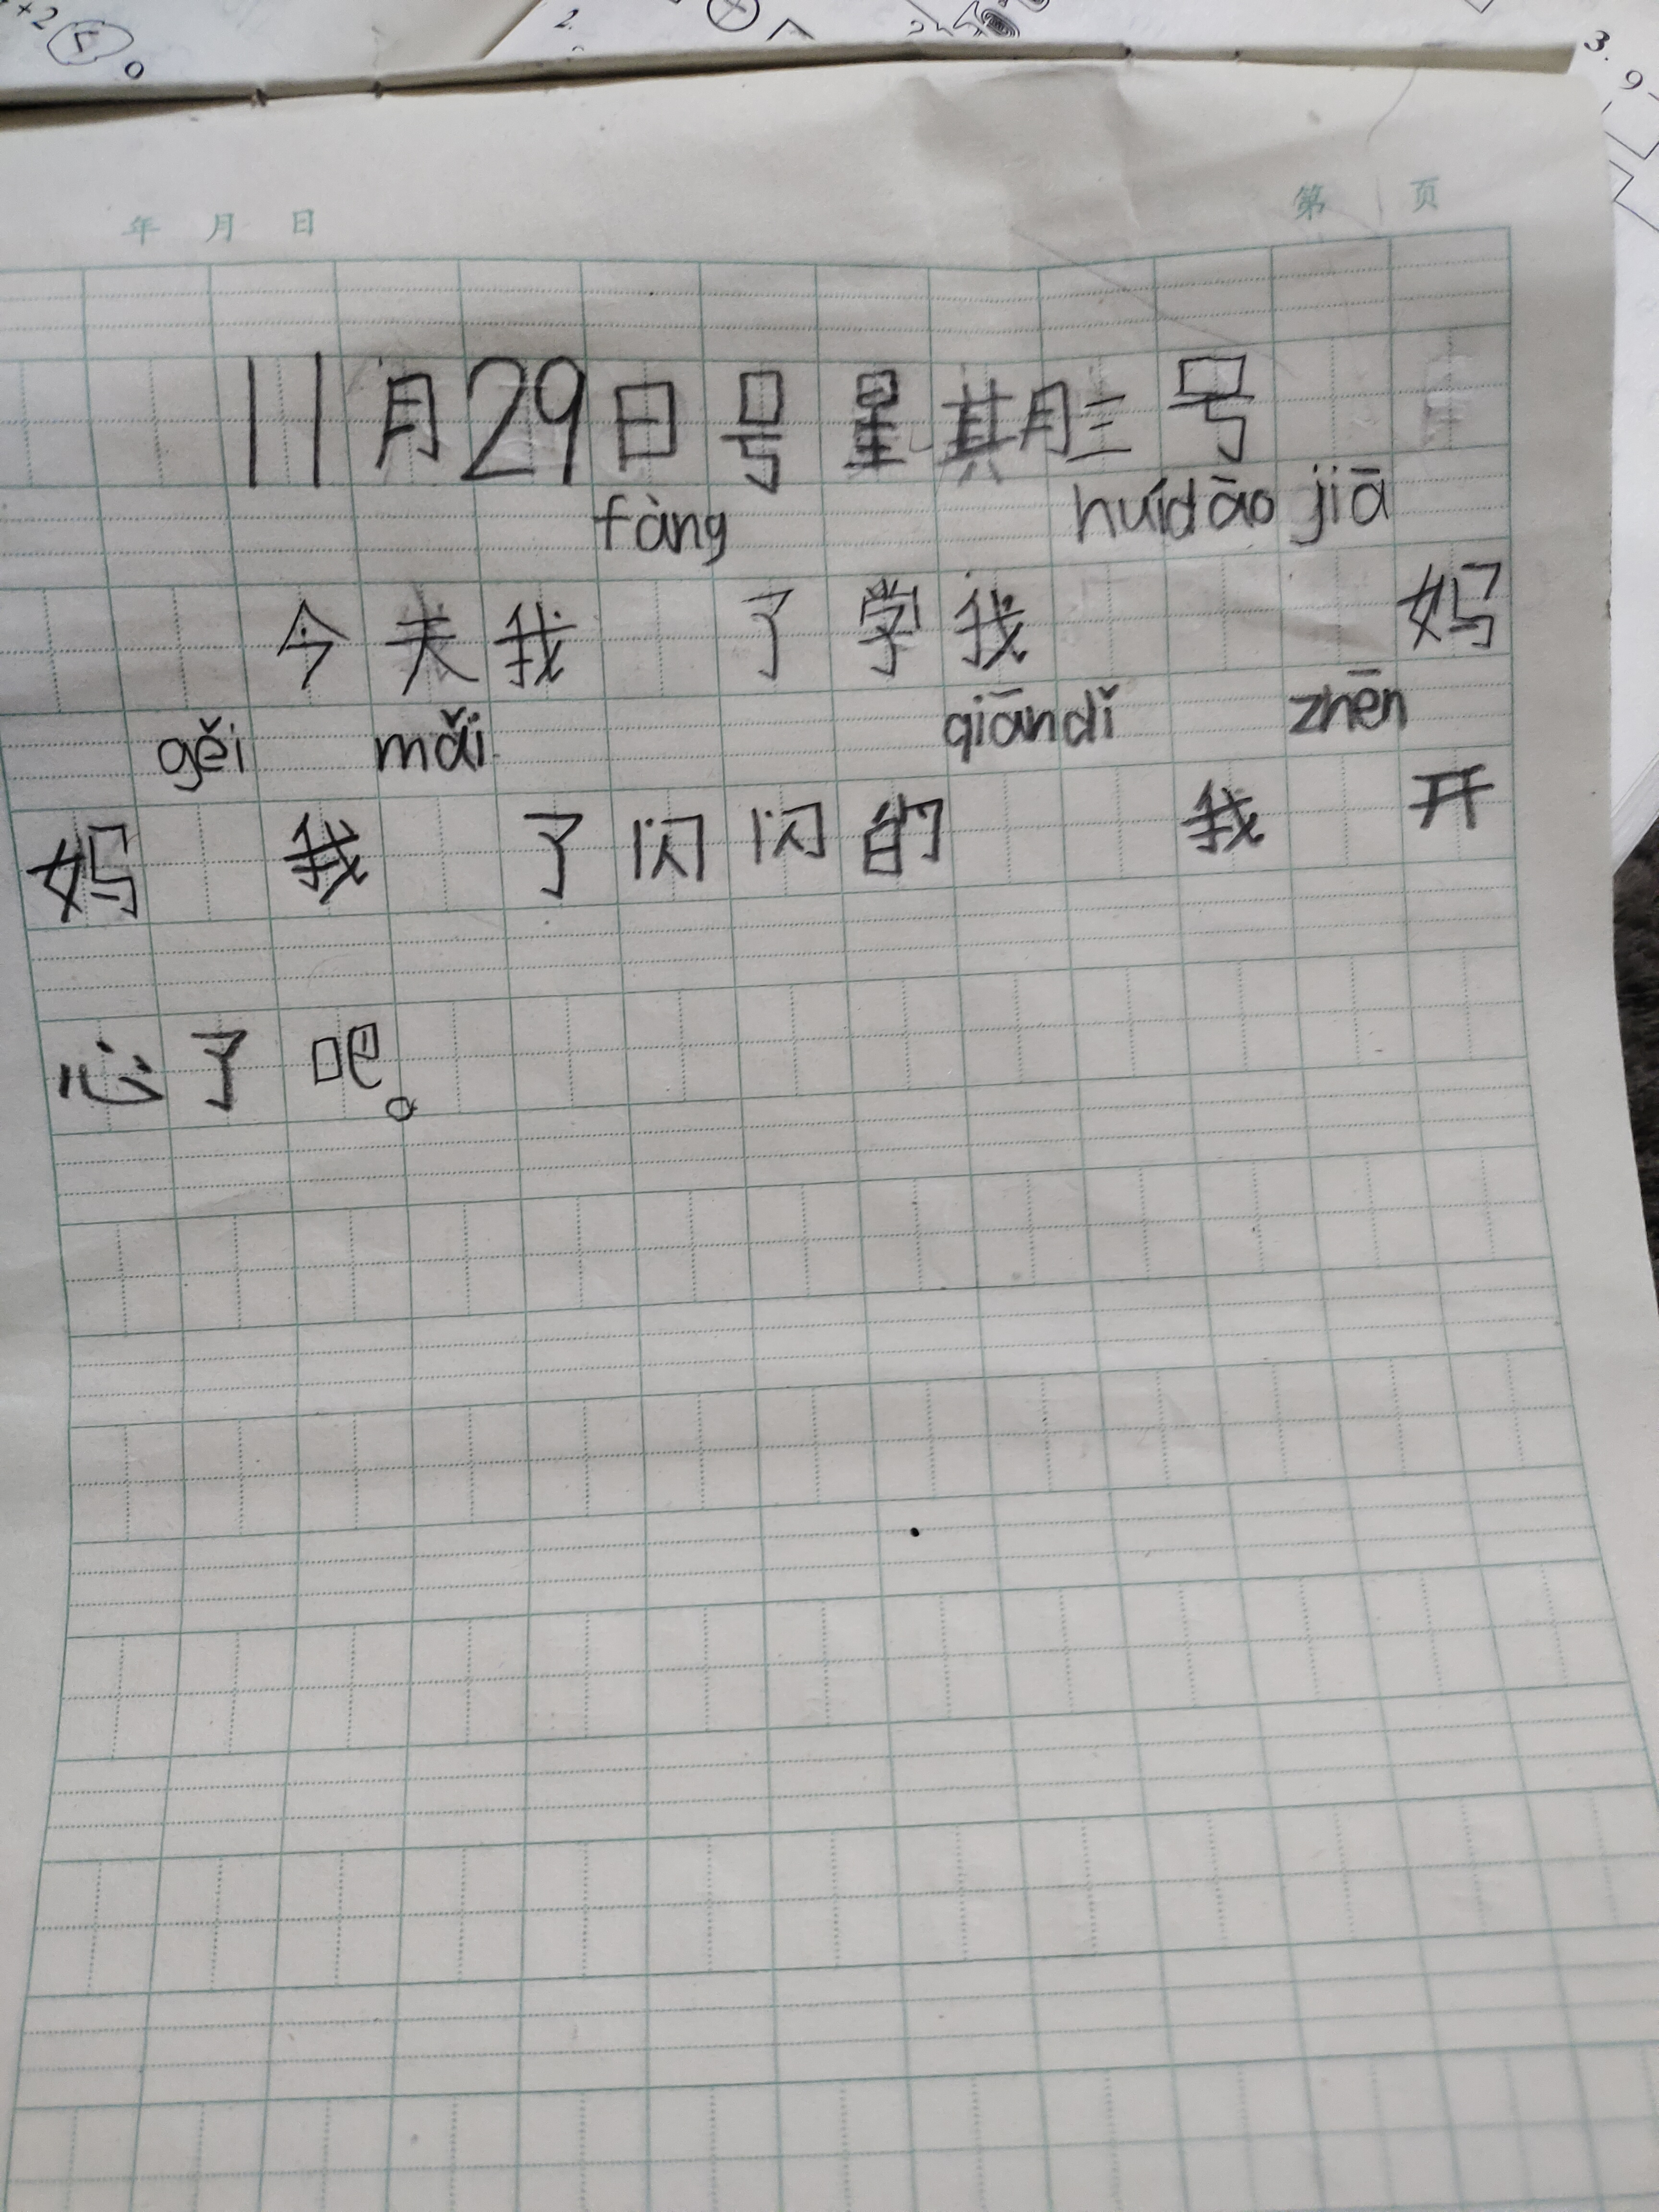 +2 5 0 2. 3. 9
年 月 日 第 页
11月29日号星期三号
fàng huídāo jiā
今天我 了学我 妈
gěi mǎi qiāndǐ zhēn
妈 我 了闪闪的 我 开
心了吧。